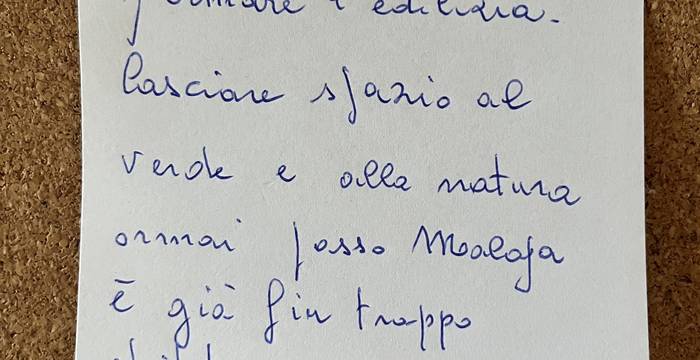 l'edilizia.
lasciare spazio al
verde e alla natura
ormai passo Maloja
è già fin troppo